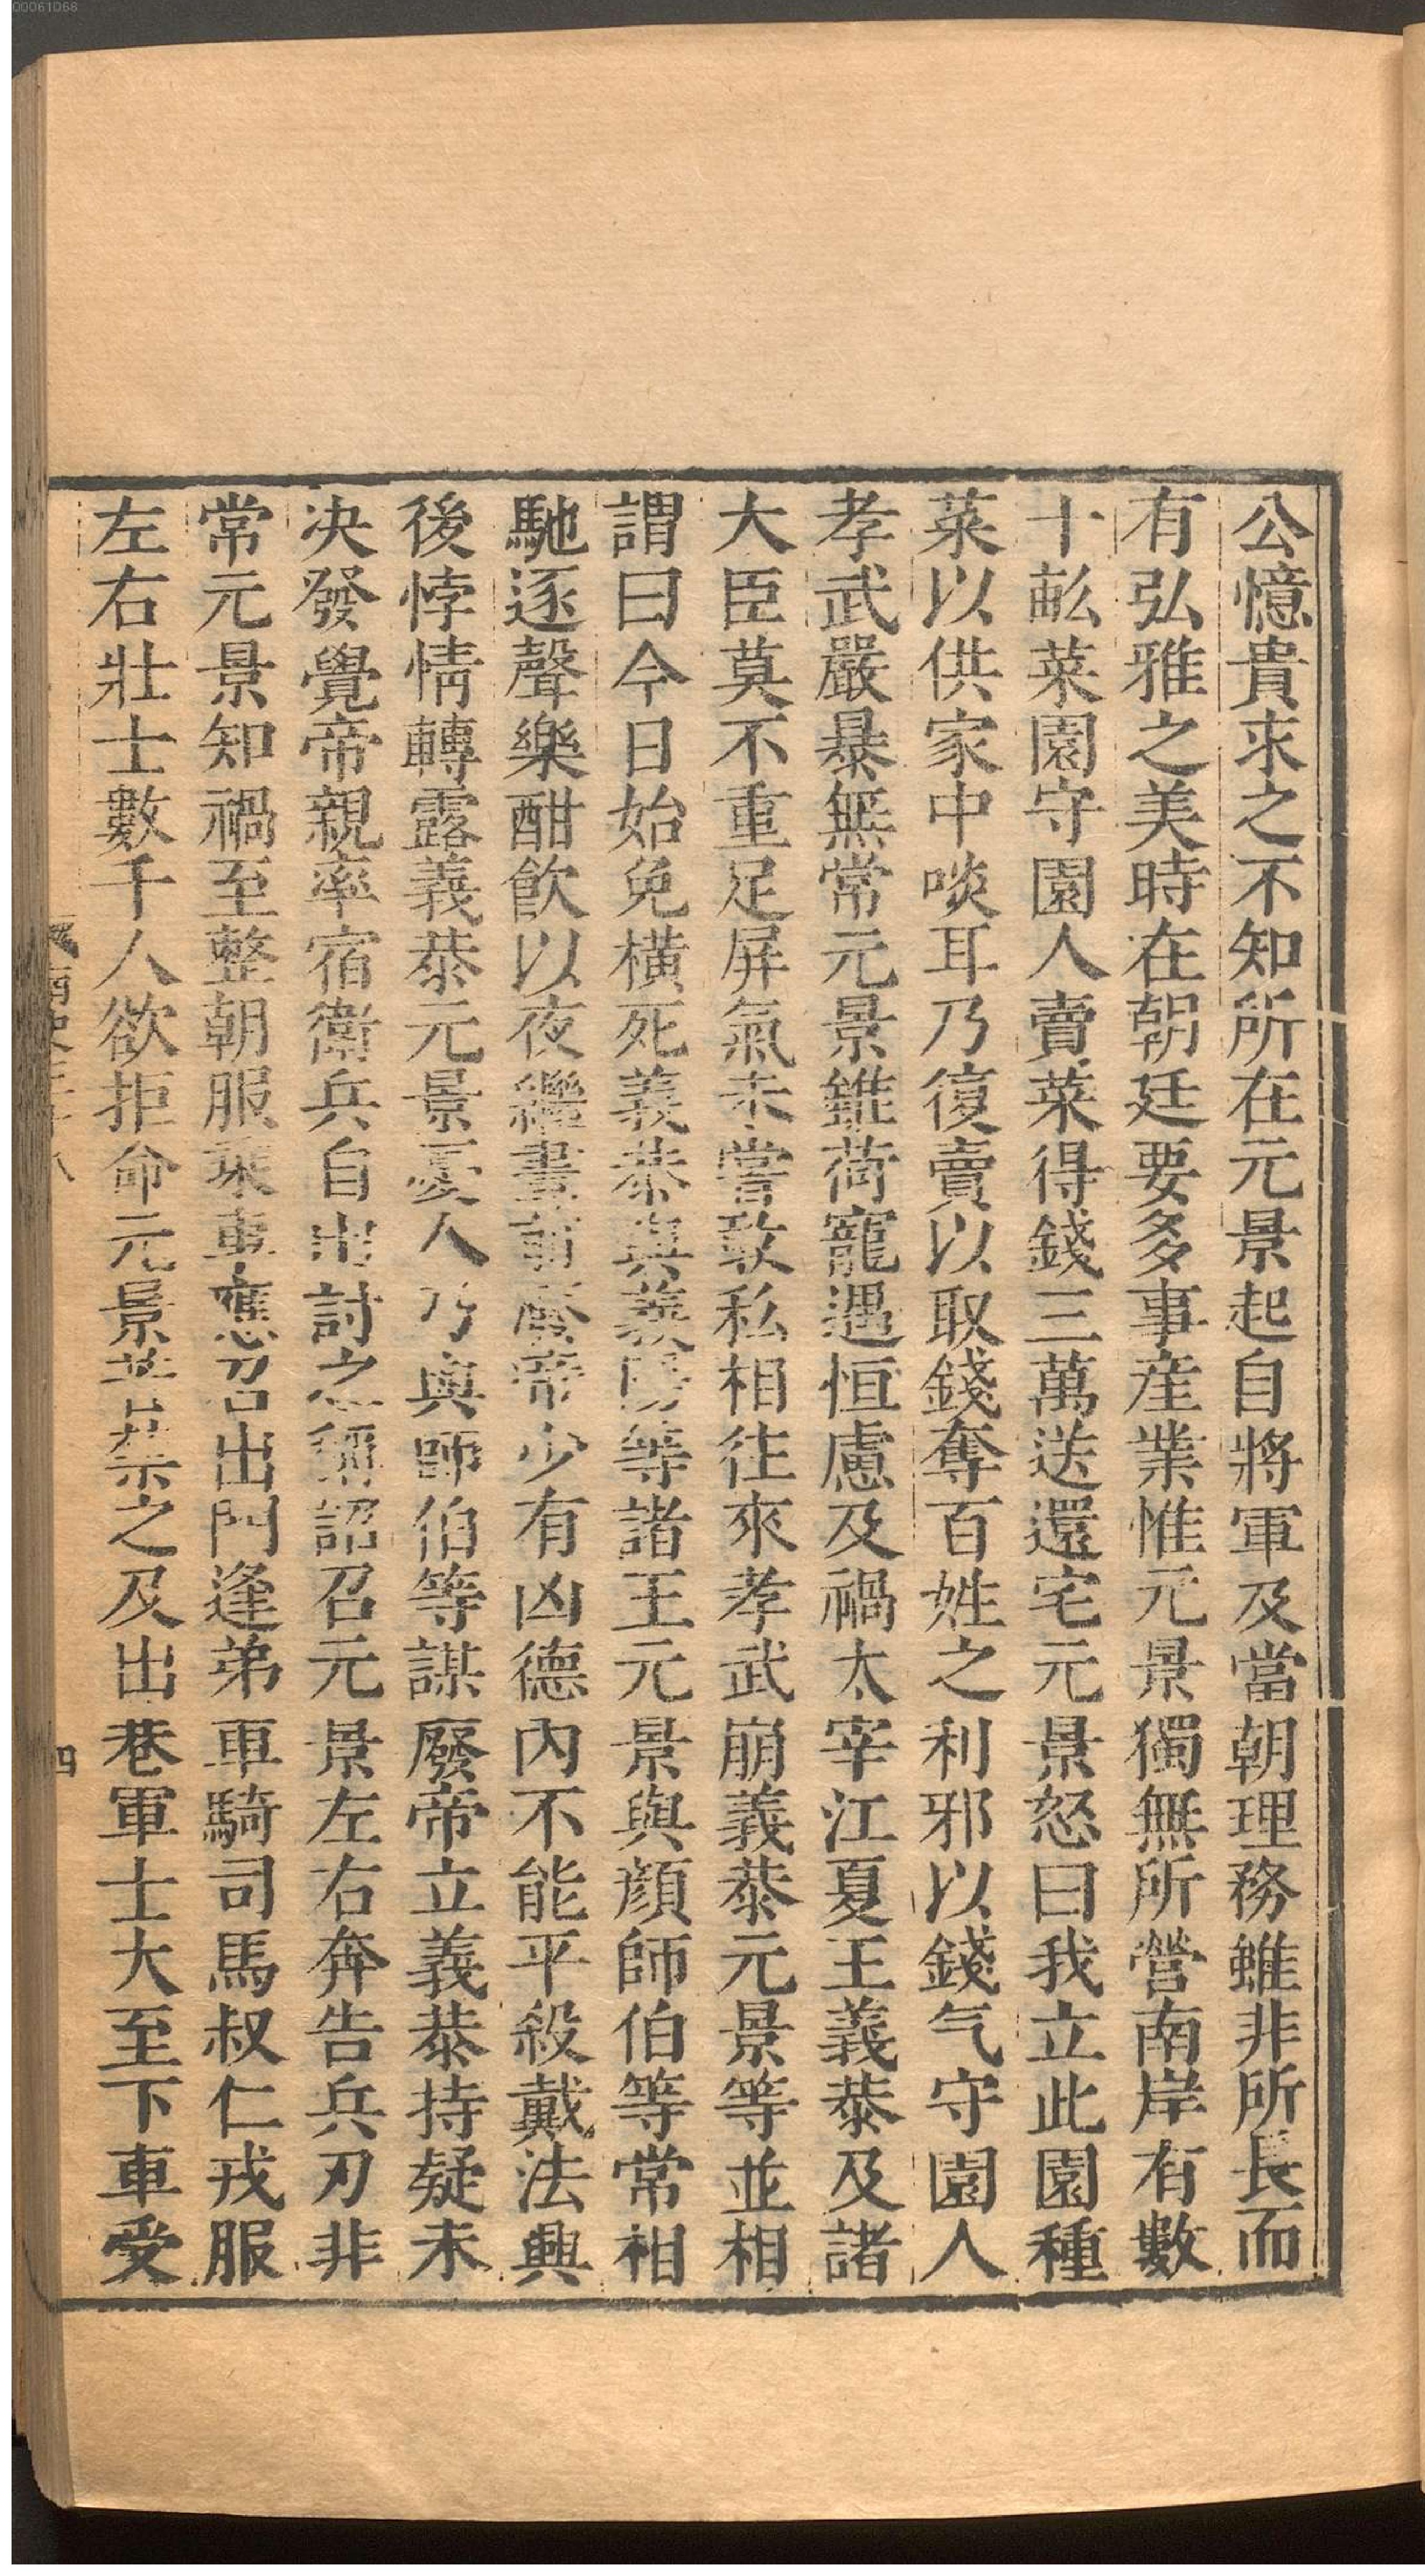 00061068
公憶貴求之不知所在元景起自將軍及當朝理務雖非所長而
有弘雅之美時在朝廷要多事產業惟元景獨無所營南岸有數
十畝菜園守園人賣菜得錢三萬送還宅元景怒曰我立此園種
菜以供家中啖耳乃復賣以取錢奪百姓之利邪以錢气守園人
孝武嚴暴無常元景雖荷寵遇恒慮及禍太宰江夏王義恭及諸
大臣莫不重足屏氣未嘗敢私相往來孝武崩義恭元景等並相
謂曰今日始免橫死義恭與義陽等諸王元景與顏師伯等常相
馳逐聲樂酣飲以夜繼晝前廢帝少有凶德內不能平殺戴法興
後悖情轉露義恭元景憂人乃與師伯等謀廢帝立義恭持疑未
决發覺帝親率宿衛兵自出討之稱詔召元景左右奔告兵刃非
常元景知禍至整朝服乘車應召出門逢弟車騎司馬叔仁戎服
左右壯士數千人欲拒命元景苦禁之及出巷軍士大至下車受
南史三十八
四